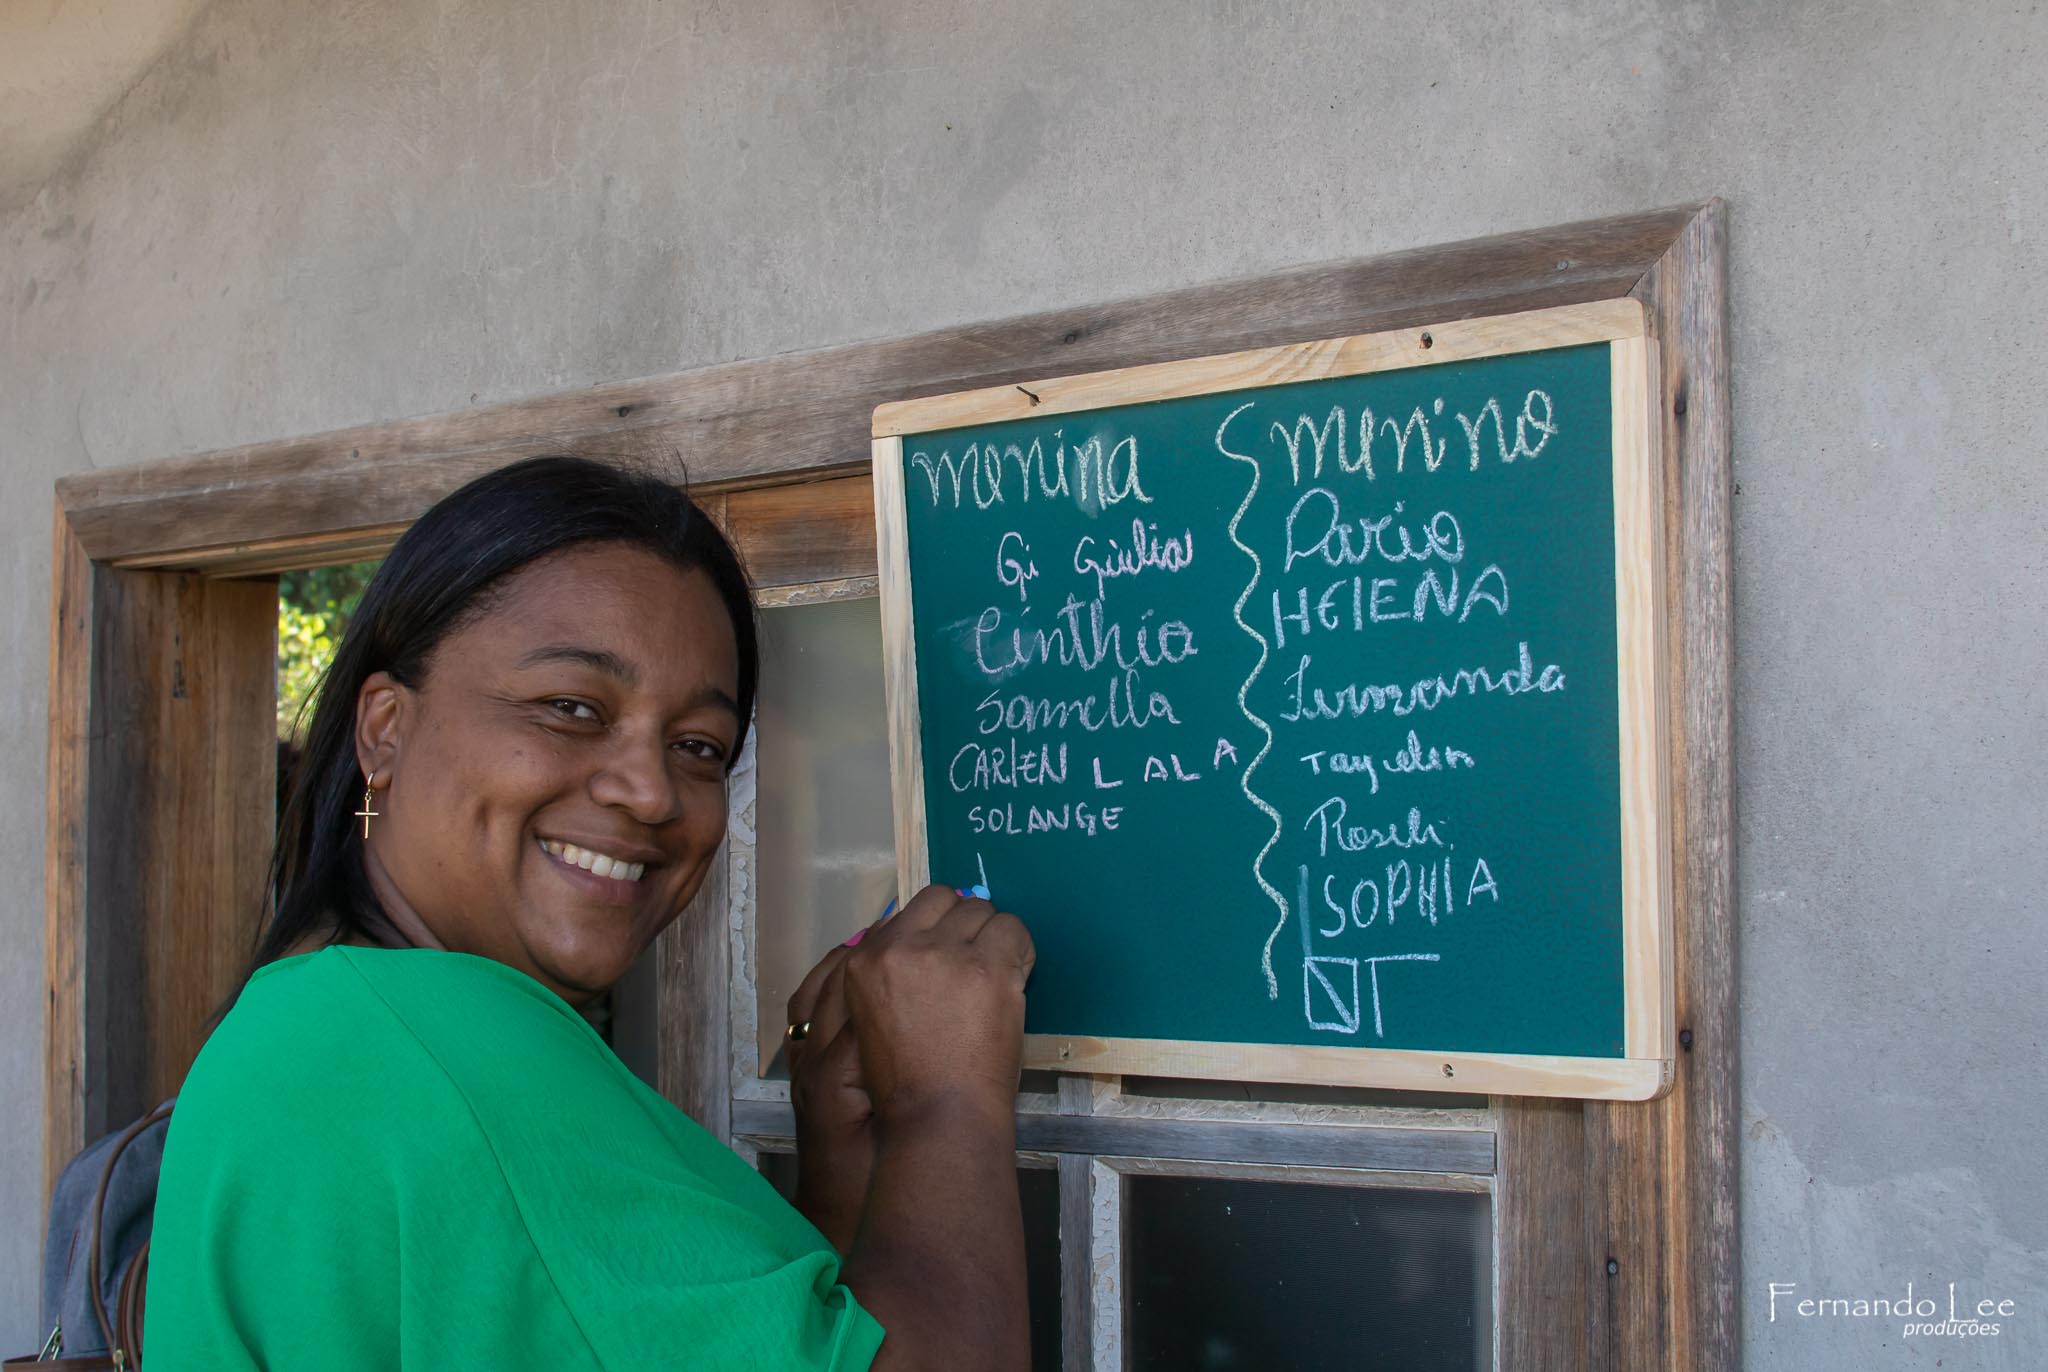 menina
Gi Giulia
Cinthia
Samella
CARlEN LALA
SOLANGE
menino
Dario
HElENA
Fernanda
Roseli
SOPHIA
Fernando Lee
produções